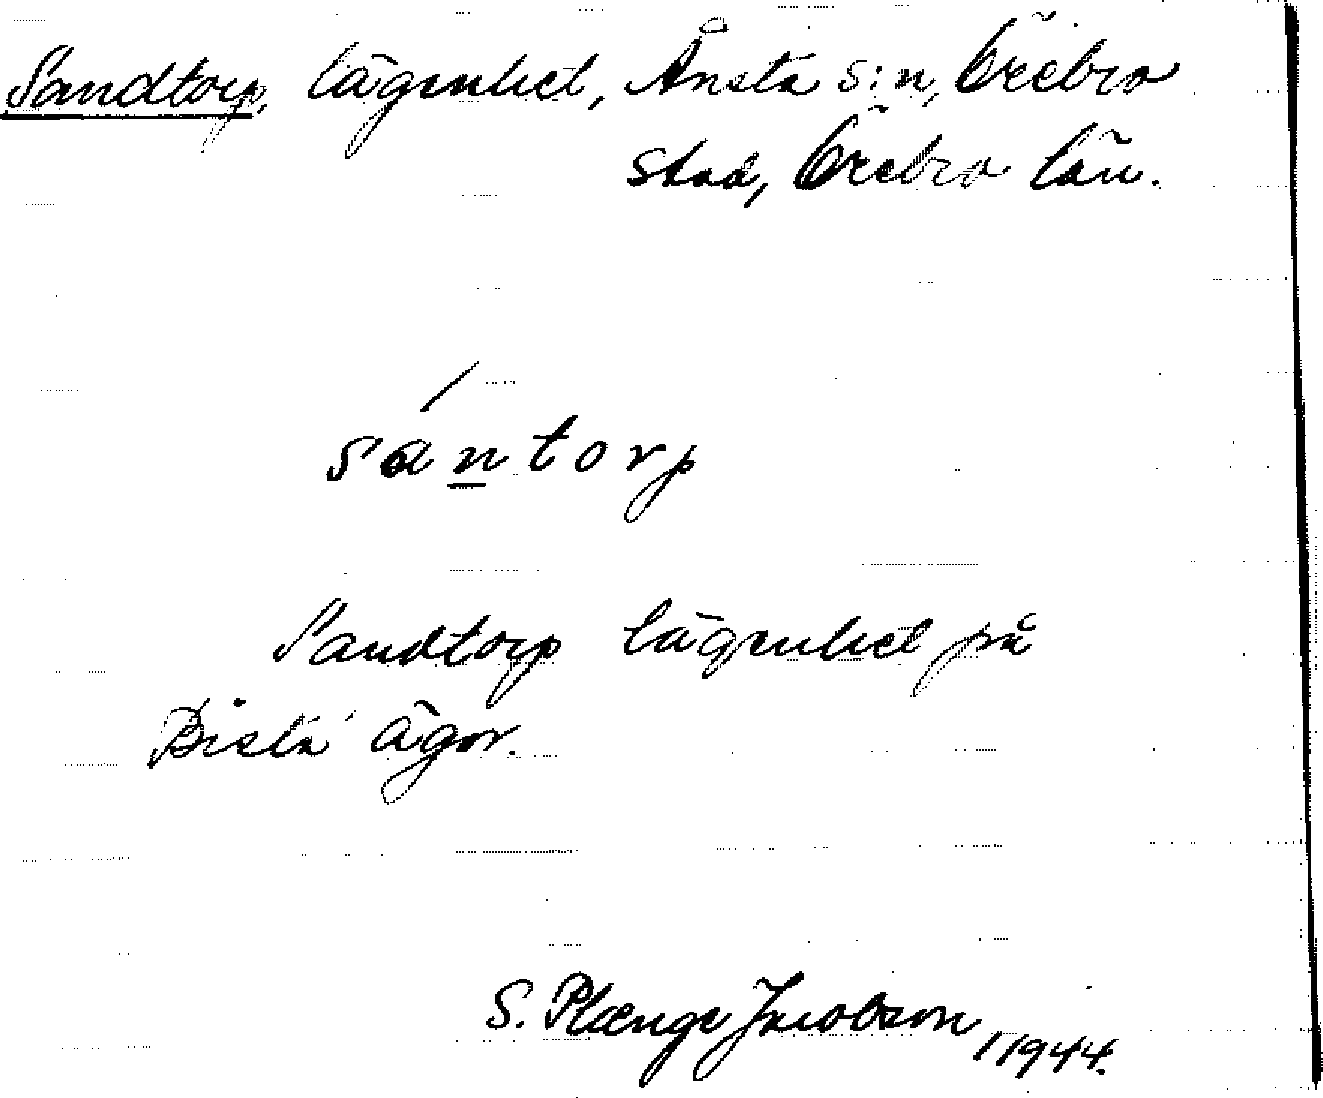 Sandtorp, lägenhet, Ånsta s:n, Örebro
stad, Örebro län.
sántorp
Sandtorp lägenhet på
Bista ägor.
S. Plænge Jacobson 1944.